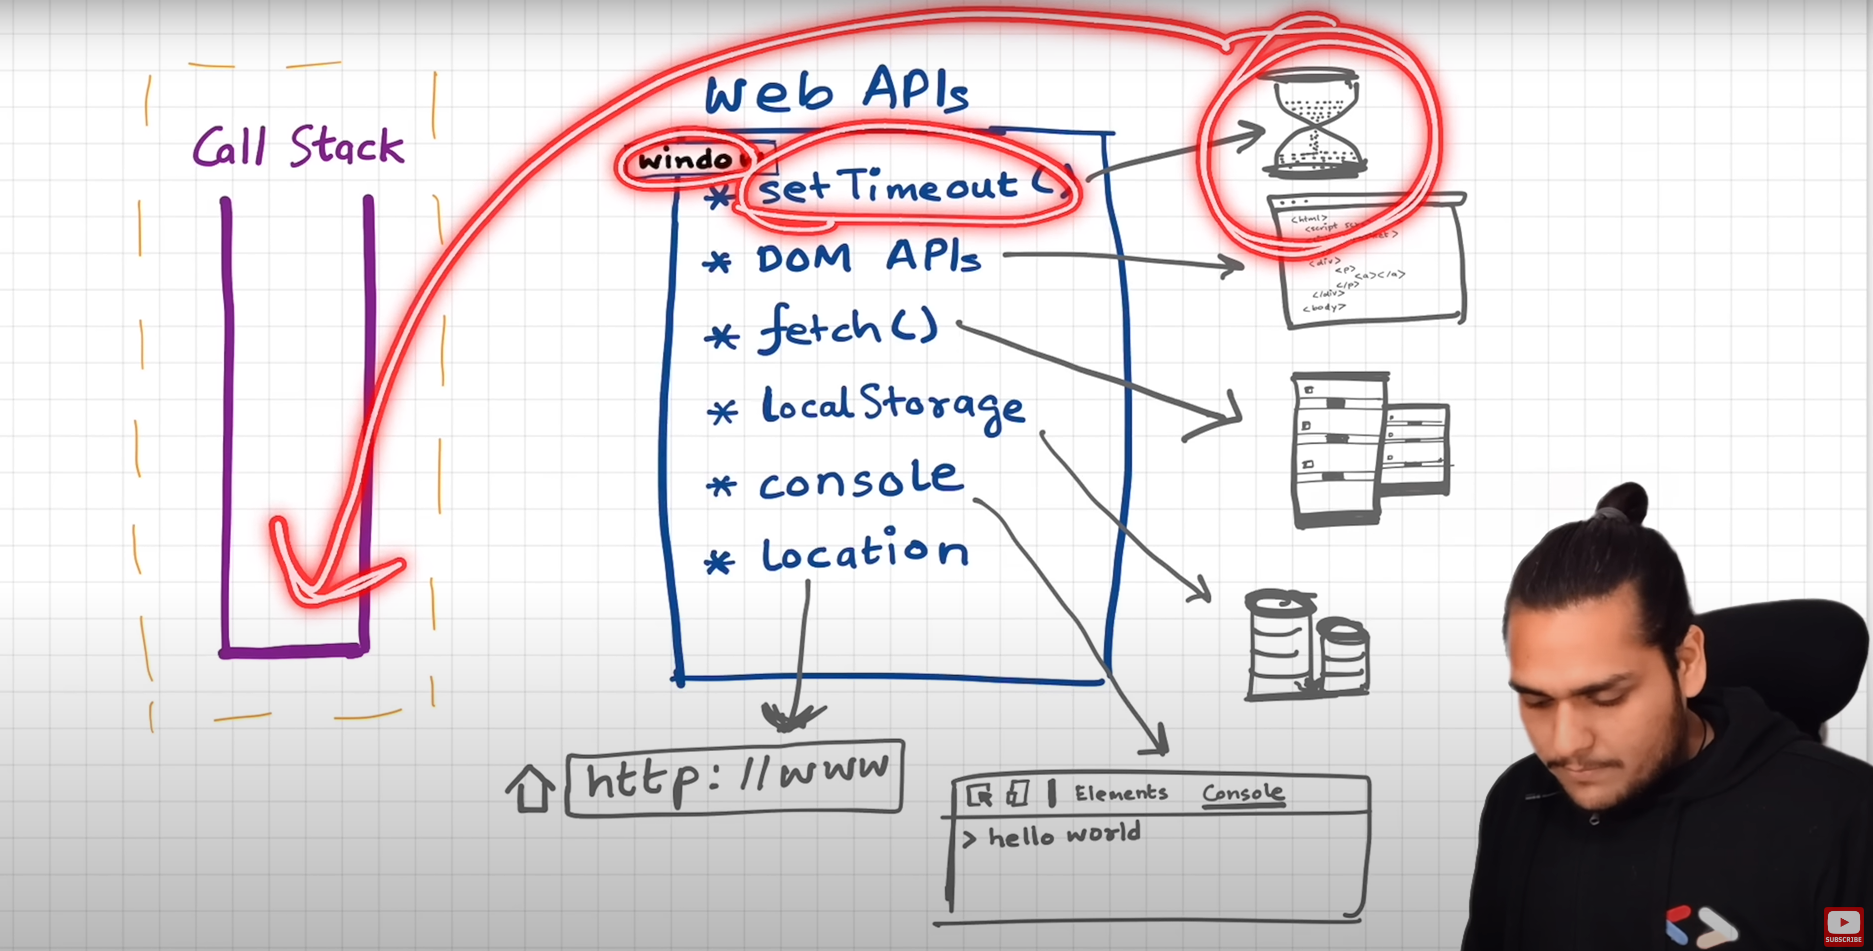 Web APIs
Call Stack
window
* setTimeout()
* DOM APIs
* fetch()
* localStorage
* console
* location
<html>
<div>
<p>
<a></a>
</p>
</div>
<body>
http://www
Elements Console
> hello world
SUBSCRIBE